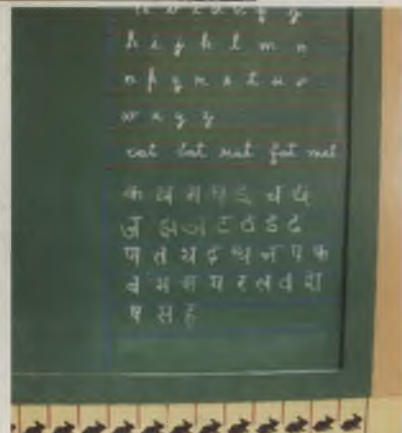 a b c d e f g
h i j k l m n
o p q r s t u v
w x y z
cat bat rat fat mat
क ख ग घ ङ च छ
ज झ ञ ट ठ ड ढ
ण त थ द ध न प फ
ब भ म य र ल व श
ष स ह